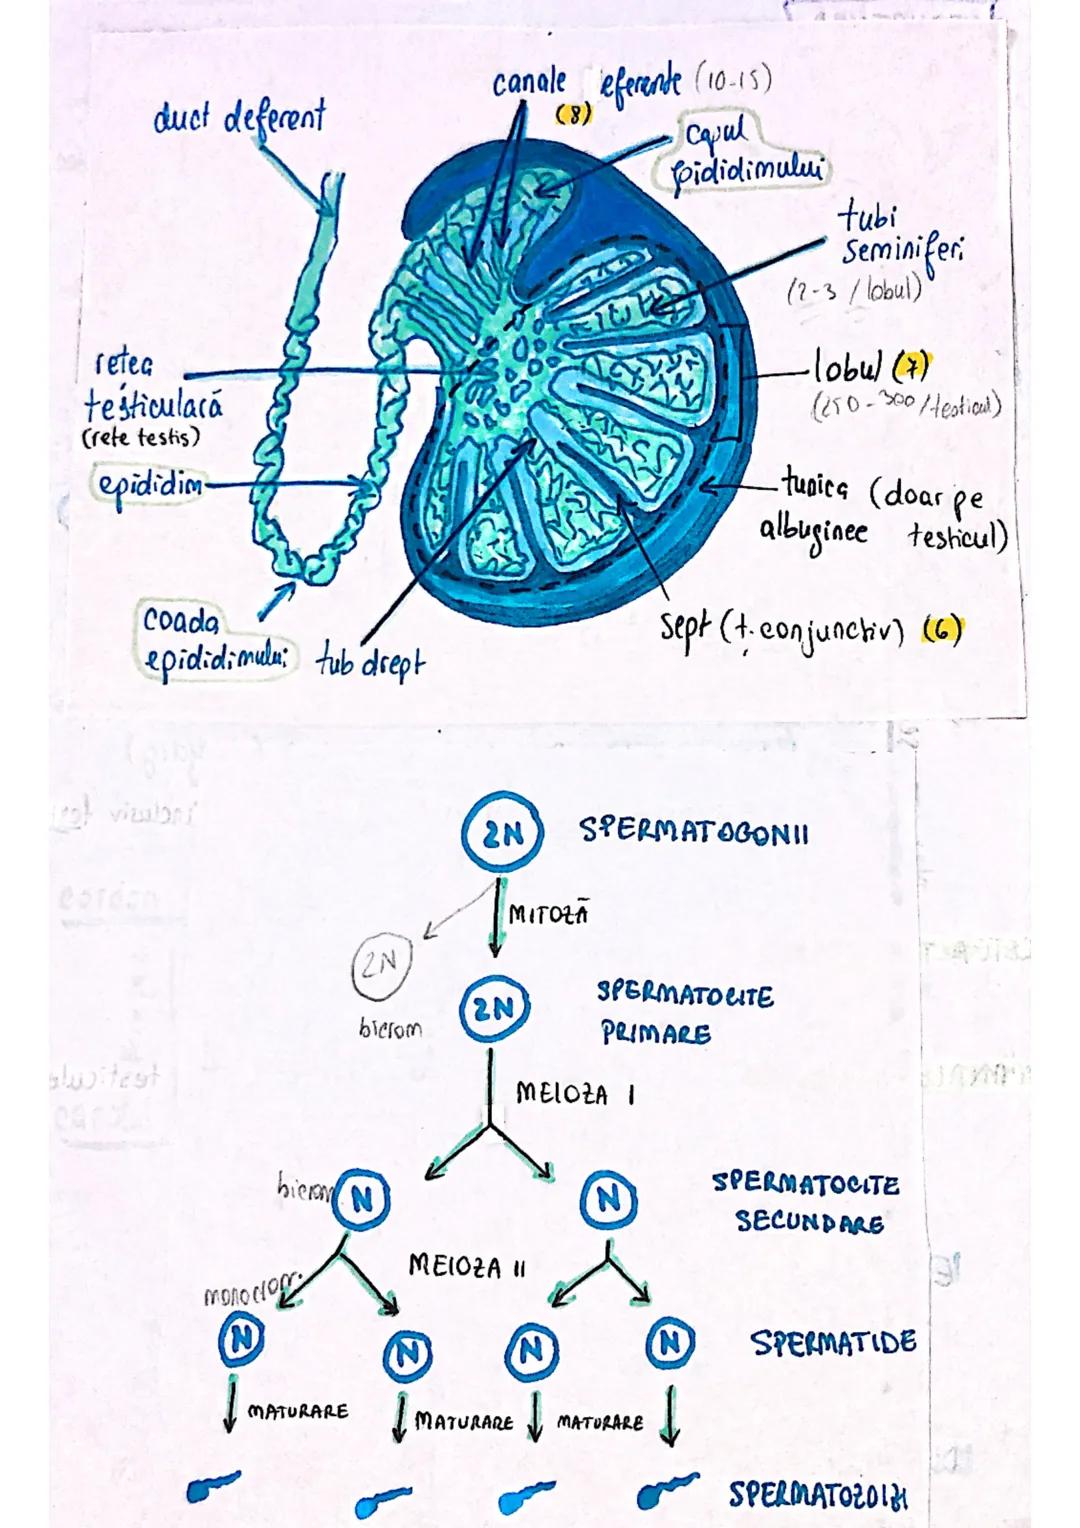 canale eferente (10-15)
(8)
duct deferent
capul
epididimului
tubi
seminiferi
(2-3 / lobul)
rețea
testiculară
(rete testis)
lobul (7)
(250-300/testicul)
epididim
tunica (doar pe
albuginee testicul)
coada
epididimului
tub drept
sept (ț. conjunctiv) (6)
2N SPERMATOGONII
MITOZĂ
2N
bicrom
2N SPERMATOCITE
PRIMARE
MEIOZA I
bicrom N N SPERMATOCITE
SECUNDARE
MEIOZA II
monocrom.
N N N N SPERMATIDE
MATURARE MATURARE MATURARE
SPERMATOZOIZI